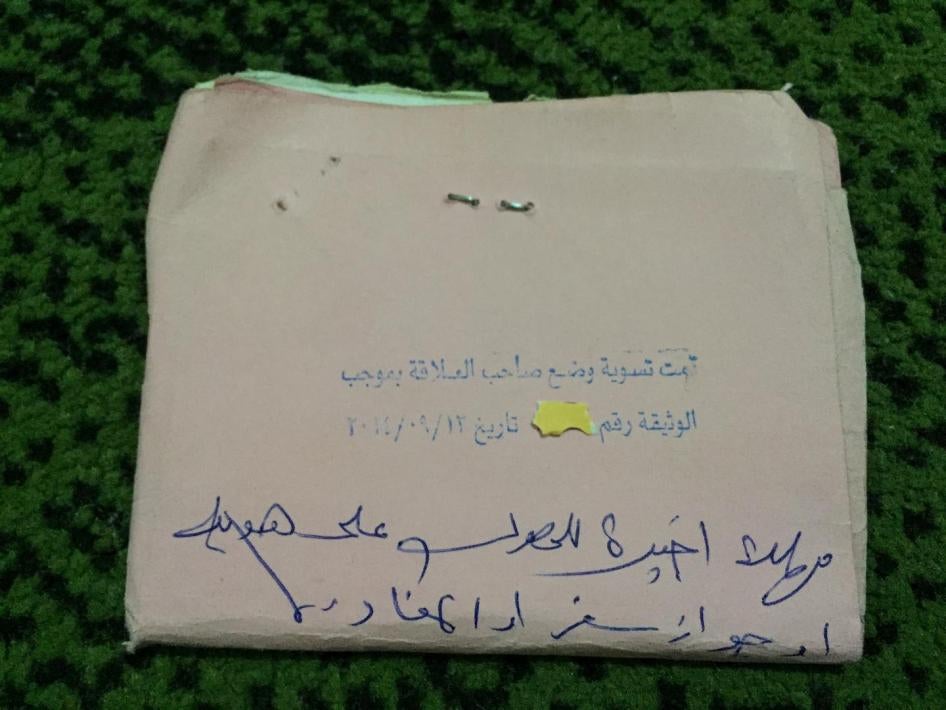 تمت تسوية وضع صاحب العلاقة بموجب
الوثيقة رقم تاريخ ٢٠١٤/٠٩/١٣
مهلة اخيرة للحصول على هوية
او جواز سفر او المغادرة